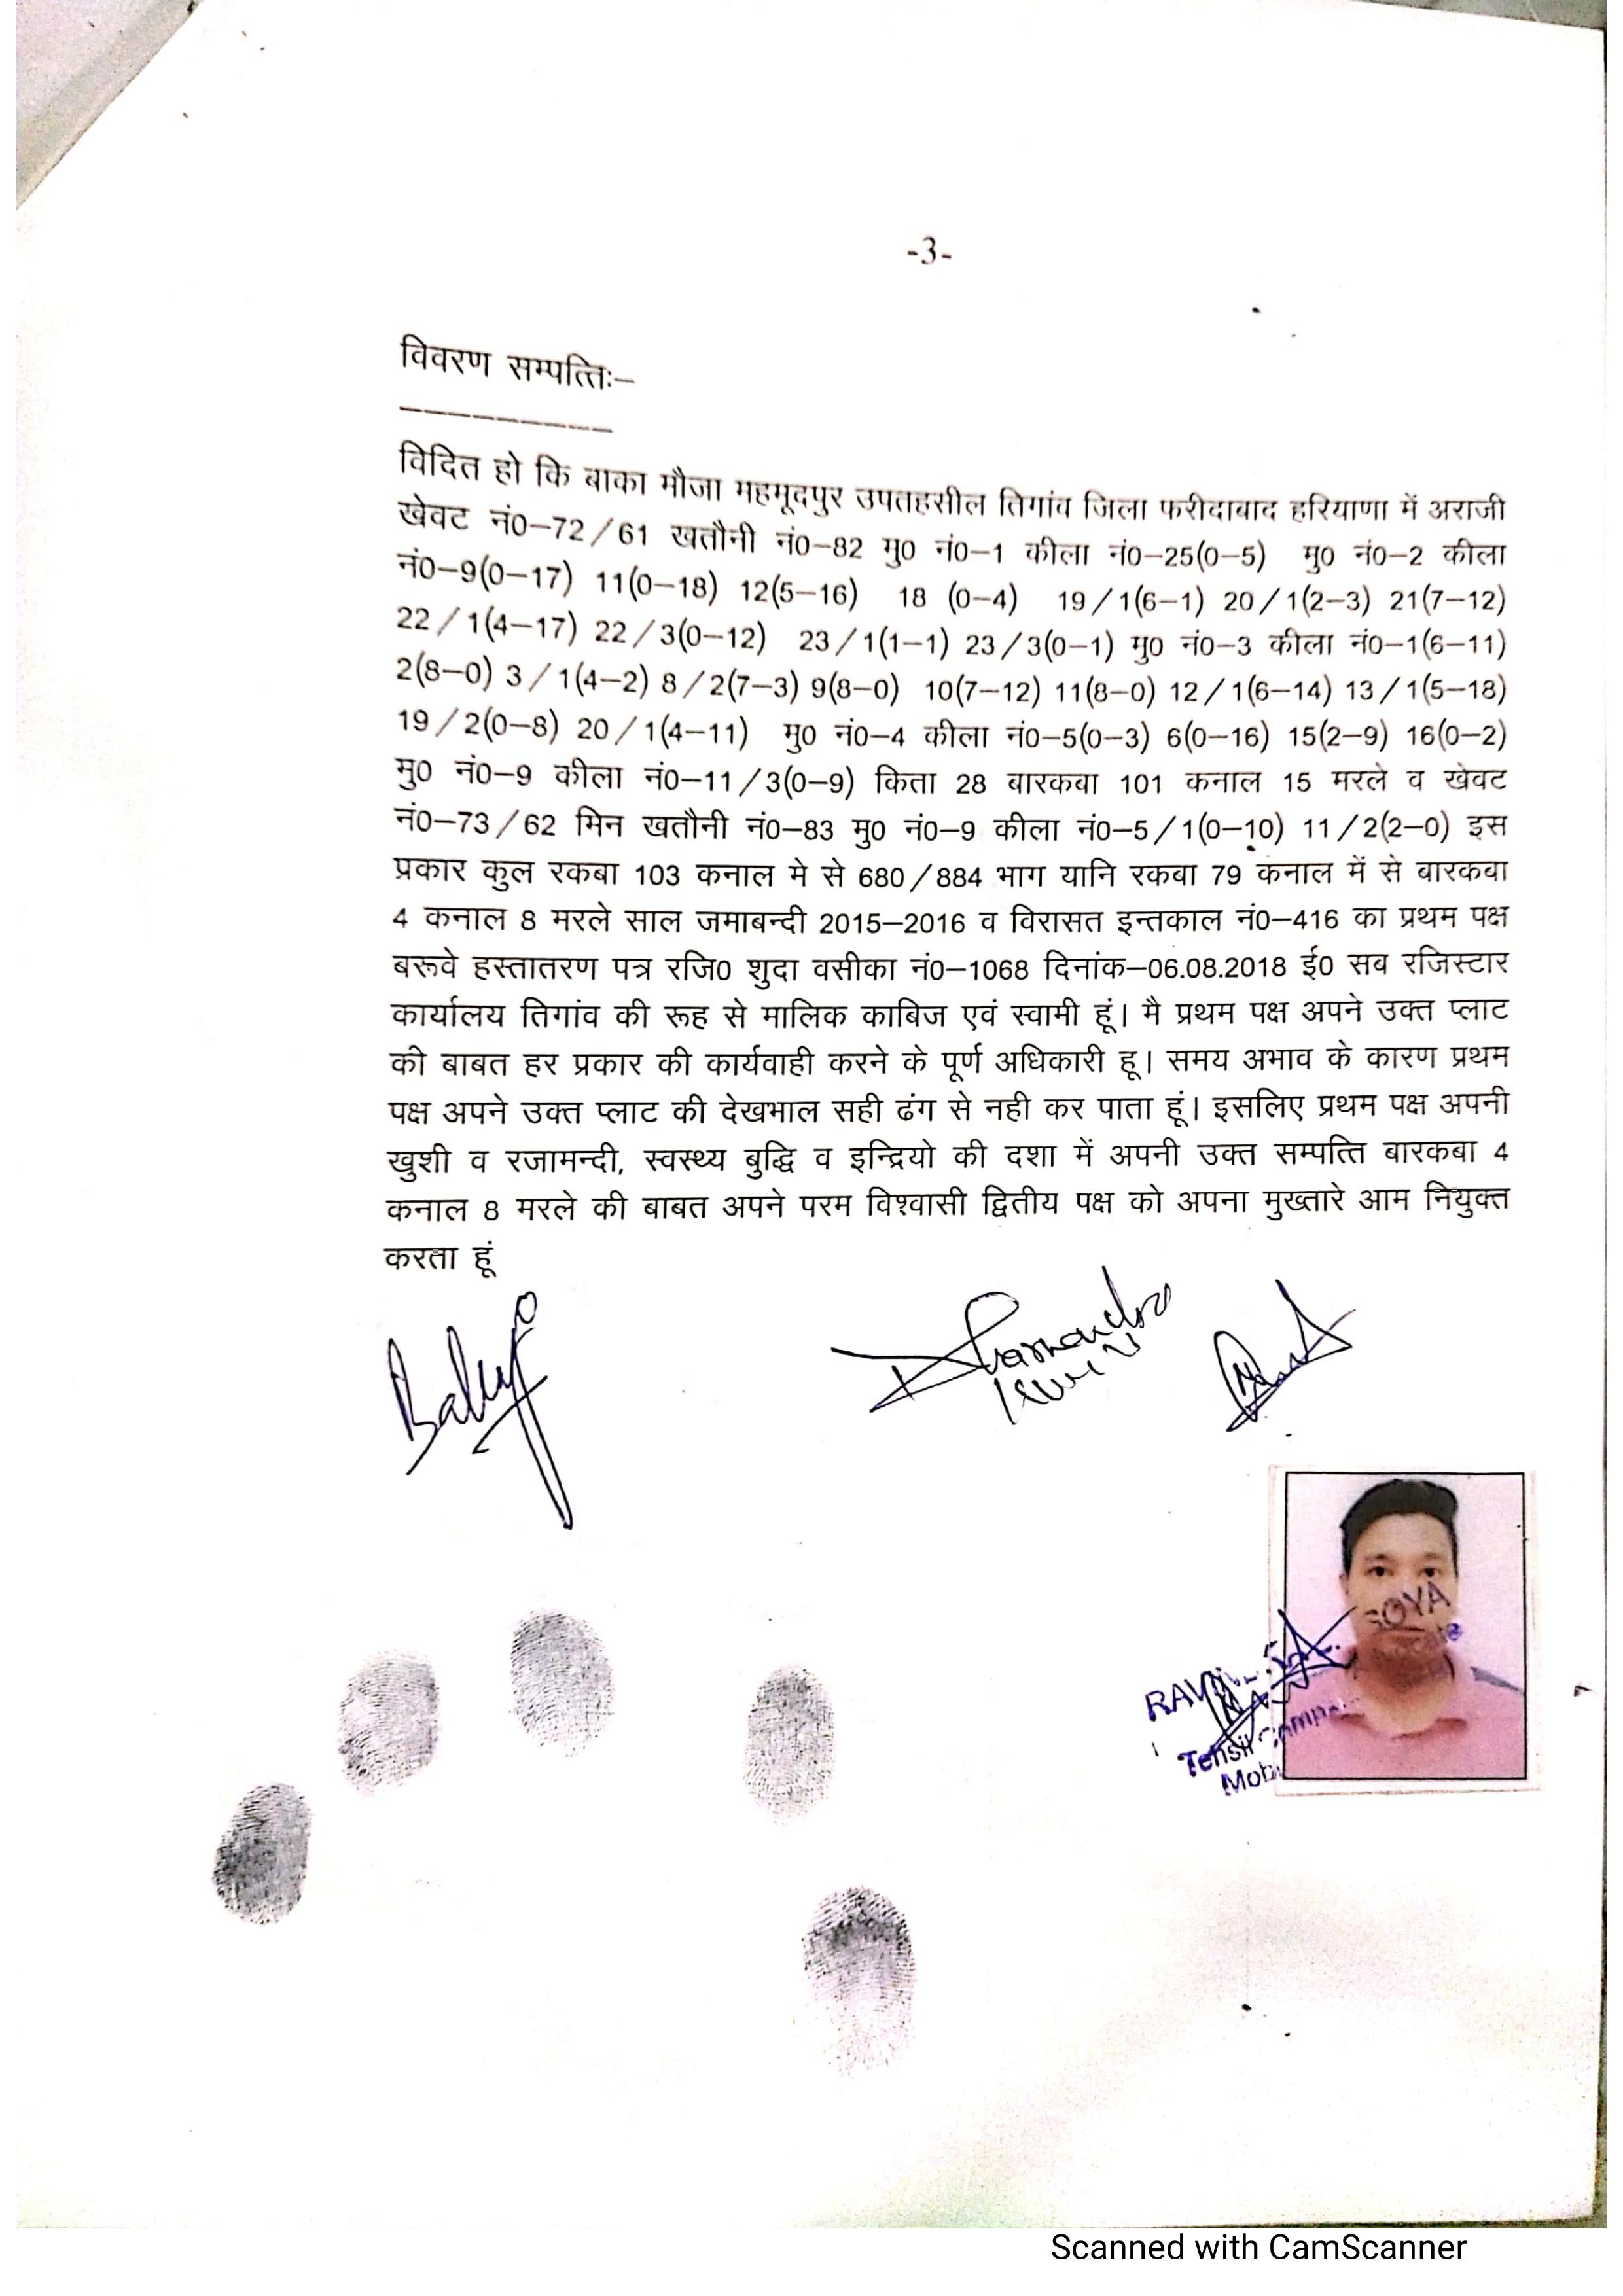 -3-
विवरण सम्पत्तिः–
----------
विदित हो कि बाका मौजा महमूदपुर उपतहसील तिगांव जिला फरीदाबाद हरियाणा में अराजी
खेवट नं0–72/61 खतौनी नं0–82 मु0 नं0–1 कीला नं0–25(0–5) मु0 नं0–2 कीला
नं0–9(0–17) 11(0–18) 12(5–16) 18 (0–4) 19/1(6–1) 20/1(2–3) 21(7–12)
22/1(4–17) 22/3(0–12) 23/1(1–1) 23/3(0–1) मु0 नं0–3 कीला नं0–1(6–11)
2(8–0) 3/1(4–2) 8/2(7–3) 9(8–0) 10(7–12) 11(8–0) 12/1(6–14) 13/1(5–18)
19/2(0–8) 20/1(4–11) मु0 नं0–4 कीला नं0–5(0–3) 6(0–16) 15(2–9) 16(0–2)
मु0 नं0–9 कीला नं0–11/3(0–9) किता 28 बारकबा 101 कनाल 15 मरले व खेवट
नं0–73/62 मिन खतौनी नं0–83 मु0 नं0–9 कीला नं0–5/1(0–10) 11/2(2–0) इस
प्रकार कुल रकबा 103 कनाल मे से 680/884 भाग यानि रकबा 79 कनाल में से बारकबा
4 कनाल 8 मरले साल जमाबन्दी 2015–2016 व विरासत इन्तकाल नं0–416 का प्रथम पक्ष
बरूवे हस्तातरण पत्र रजि0 शुदा वसीका नं0–1068 दिनांक–06.08.2018 ई0 सब रजिस्टार
कार्यालय तिगांव की रूह से मालिक काबिज एवं स्वामी हूं। मै प्रथम पक्ष अपने उक्त प्लाट
की बाबत हर प्रकार की कार्यवाही करने के पूर्ण अधिकारी हू। समय अभाव के कारण प्रथम
पक्ष अपने उक्त प्लाट की देखभाल सही ढंग से नही कर पाता हूं। इसलिए प्रथम पक्ष अपनी
खुशी व रजामन्दी, स्वस्थ्य बुद्धि व इन्द्रियो की दशा में अपनी उक्त सम्पत्ति बारकबा 4
कनाल 8 मरले की बाबत अपने परम विश्वासी द्वितीय पक्ष को अपना मुख्तारे आम नियुक्त
करता हूं
Dharmendra
Tehsil
Scanned with CamScanner